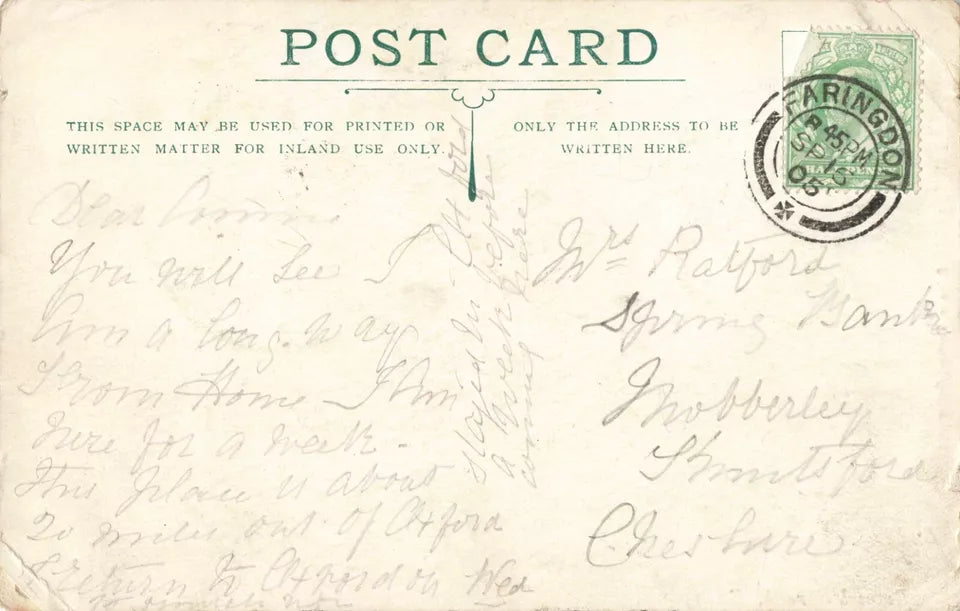 POST CARD
THIS SPACE MAY BE USED FOR PRINTED OR
WRITTEN MATTER FOR INLAND USE ONLY.
ONLY THE ADDRESS TO BE
WRITTEN HERE.
FARINGDON
45 PM
SP 15
05
Dear
You will see I
Am a long way
From Home I Am
here for a week -
This place is about
20 miles out of Oxford
I return to Oxford on Wed
stayed in
a week before
coming here
Mrs Ratford
Spring Bank
Mobberley
Knutsford
Cheshire